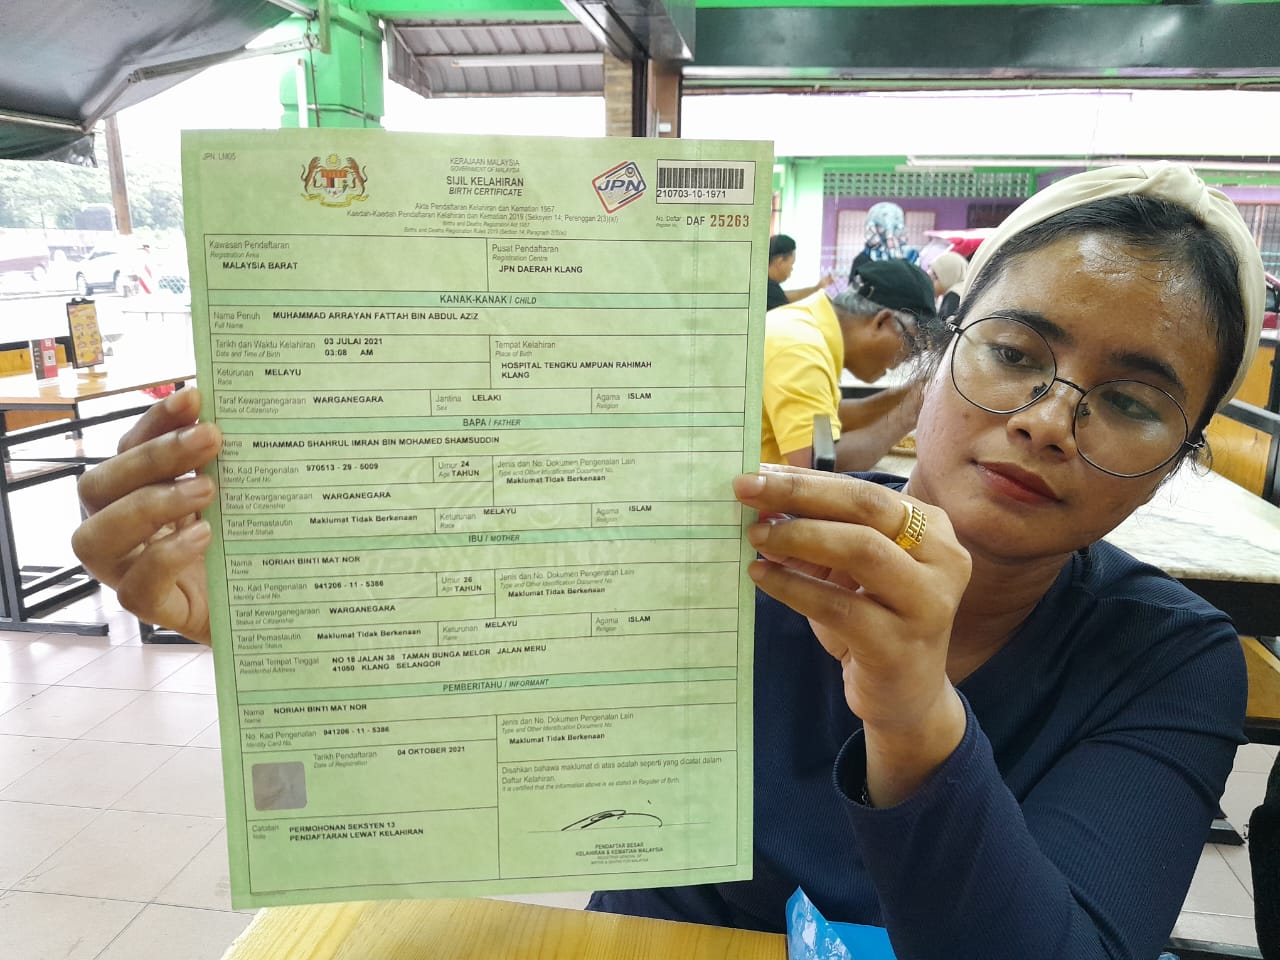 JPN. LM05
KERAJAAN MALAYSIA
GOVERNMENT OF MALAYSIA
SIJIL KELAHIRAN
BIRTH CERTIFICATE
JPN
210703-10-1971
Akta Pendaftaran Kelahiran dan Kematian 1957
Kaedah-Kaedah Pendaftaran Kelahiran dan Kematian 2019 (Seksyen 14; Perenggan 2(3)(a))
Births and Deaths Registration Act 1957
Births and Deaths Registration Rules 2019 (Section 14; Paragraph 2(3)(a))
No. Daftar DAF 25263
Register No.
Kawasan Pendaftaran
Registration Area
MALAYSIA BARAT
Pusat Pendaftaran
Registration Centre
JPN DAERAH KLANG
KANAK-KANAK / CHILD
Nama Penuh MUHAMMAD ARRAYAN FATTAH BIN ABDUL AZIZ
Full Name
Tarikh dan Waktu Kelahiran 03 JULAI 2021
Date and Time of Birth 03:08 AM
Tempat Kelahiran
Place of Birth
HOSPITAL TENGKU AMPUAN RAHIMAH
KLANG
Keturunan MELAYU
Race
Taraf Kewarganegaraan WARGANEGARA
Status of Citizenship
Jantina LELAKI
Sex
Agama ISLAM
Religion
BAPA / FATHER
Nama MUHAMMAD SHAHRUL IMRAN BIN MOHAMED SHAMSUDDIN
Name
No. Kad Pengenalan 970513 - 29 - 5009
Identity Card No.
Umur 24
Age TAHUN
Jenis dan No. Dokumen Pengenalan Lain
Type and Other Identification Document No.
Maklumat Tidak Berkenaan
Taraf Kewarganegaraan WARGANEGARA
Status of Citizenship
Taraf Pemastautin Maklumat Tidak Berkenaan
Resident Status
Keturunan MELAYU
Race
Agama ISLAM
Religion
IBU / MOTHER
Nama NORIAH BINTI MAT NOR
Name
No. Kad Pengenalan 941206 - 11 - 5386
Identity Card No.
Umur 26
Age TAHUN
Jenis dan No. Dokumen Pengenalan Lain
Type and Other Identification Document No.
Maklumat Tidak Berkenaan
Taraf Kewarganegaraan WARGANEGARA
Status of Citizenship
Taraf Pemastautin Maklumat Tidak Berkenaan
Resident Status
Keturunan MELAYU
Race
Agama ISLAM
Religion
Alamat Tempat Tinggal NO 18 JALAN 38 TAMAN BUNGA MELOR JALAN MERU
Residential Address 41050 KLANG SELANGOR
PEMBERITAHU / INFORMANT
Nama NORIAH BINTI MAT NOR
Name
No. Kad Pengenalan 941206 - 11 - 5386
Identity Card No.
Jenis dan No. Dokumen Pengenalan Lain
Type and Other Identification Document No.
Maklumat Tidak Berkenaan
Tarikh Pendaftaran 04 OKTOBER 2021
Date of Registration
Disahkan bahawa maklumat di atas adalah seperti yang dicatat dalam
Daftar Kelahiran.
It is certified that the information above is as stated in Register of Birth.
Catatan PERMOHONAN SEKSYEN 13
Note PENDAFTARAN LEWAT KELAHIRAN
PENDAFTAR BESAR
KELAHIRAN & KEMATIAN MALAYSIA
REGISTRAR GENERAL OF
BIRTHS & DEATHS FOR MALAYSIA